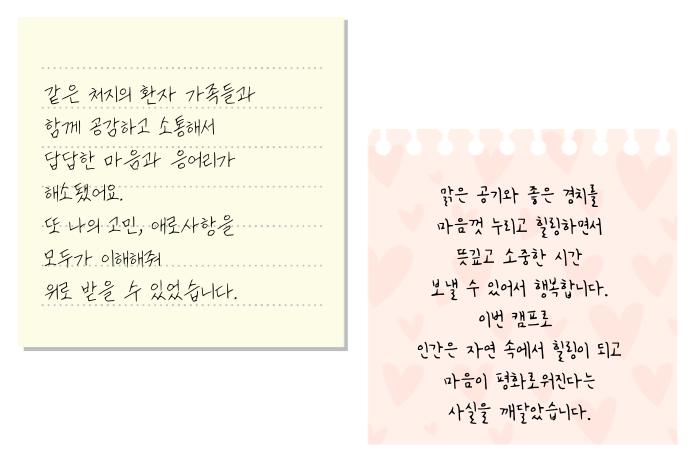 같은 처지의 환자 가족들과
함께 공감하고 소통해서
답답한 마음과 응어리가
해소됐어요.
또 나의 고민, 애로사항을
모두가 이해해줘
위로 받을 수 있었습니다.
맑은 공기와 좋은 경치를
마음껏 누리고 힐링하면서
뜻깊고 소중한 시간
보낼 수 있어서 행복합니다.
이번 캠프로
인간은 자연 속에서 힐링이 되고
마음이 평화로워진다는
사실을 깨달았습니다.